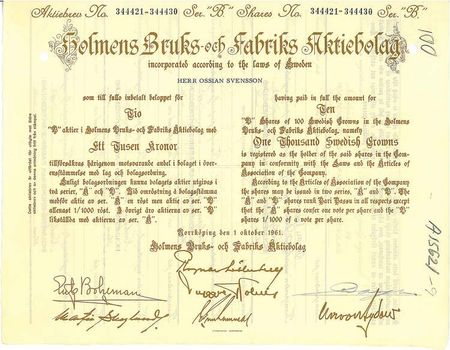 Aktiebrev No. 344421-344430 Ser. "B." Shares No. 344421-344430 Ser. "B."
Holmens Bruks- och Fabriks Aktiebolag
incorporated according to the laws of Sweden
HERR OSSIAN SVENSSON
som till fullo inbetalt beloppet för
Tio
"B" aktier i Holmens Bruks- och Fabriks Aktiebolag med
Ett Tusen Kronor
tillförsäkras härigenom motsvarande andel i bolaget i överensstämmelse med lag och bolagsordning.
Enligt bolagsordningen kunna bolagets aktier utgivas i
två serier, "A" och "B". Vid omröstning å bolagsstämma
medför aktie av ser. "A" en röst men aktie av ser. "B"
allenast 1/1000 röst. I övrigt äro aktierna av ser. "B"
likställda med aktierna av ser. "A".
having paid in full the amount for
Ten
"B" Shares of 100 Swedish Crowns in the Holmens
Bruks- och Fabriks Aktiebolag, namely
One Thousand Swedish Crowns
is registered as the holder of the said shares in the Company
in conformity with the Laws and the Articles of
Association of the Company.
According to the Articles of Association of the Company
the shares may be issued in two series, "A" and "B". The
"A" and "B" shares rank Pari Passu in all respects except
that the "A" shares confer one vote per share and the "B"
shares 1/1000 of a vote per share.
Norrköping den 1 oktober 1961.
Holmens Bruks- och Fabriks Aktiebolag
100
A15621-9